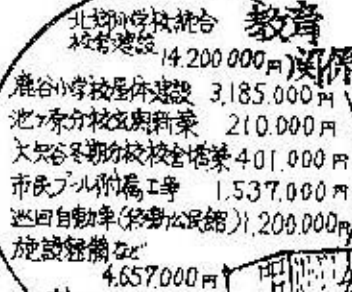 教育
関係
北郷小学校統合
校舎建設
14.200.000円
鹿谷小学校屋体建設 3.185.000円
池ヶ原分校玄関新築 210.000円
大矢谷冬期分校校舎増築 401.000円
市民プール附属工事 1.537.000円
巡回自動車(移動公民館) 1,200.000円
施設整備など
4.657.000円